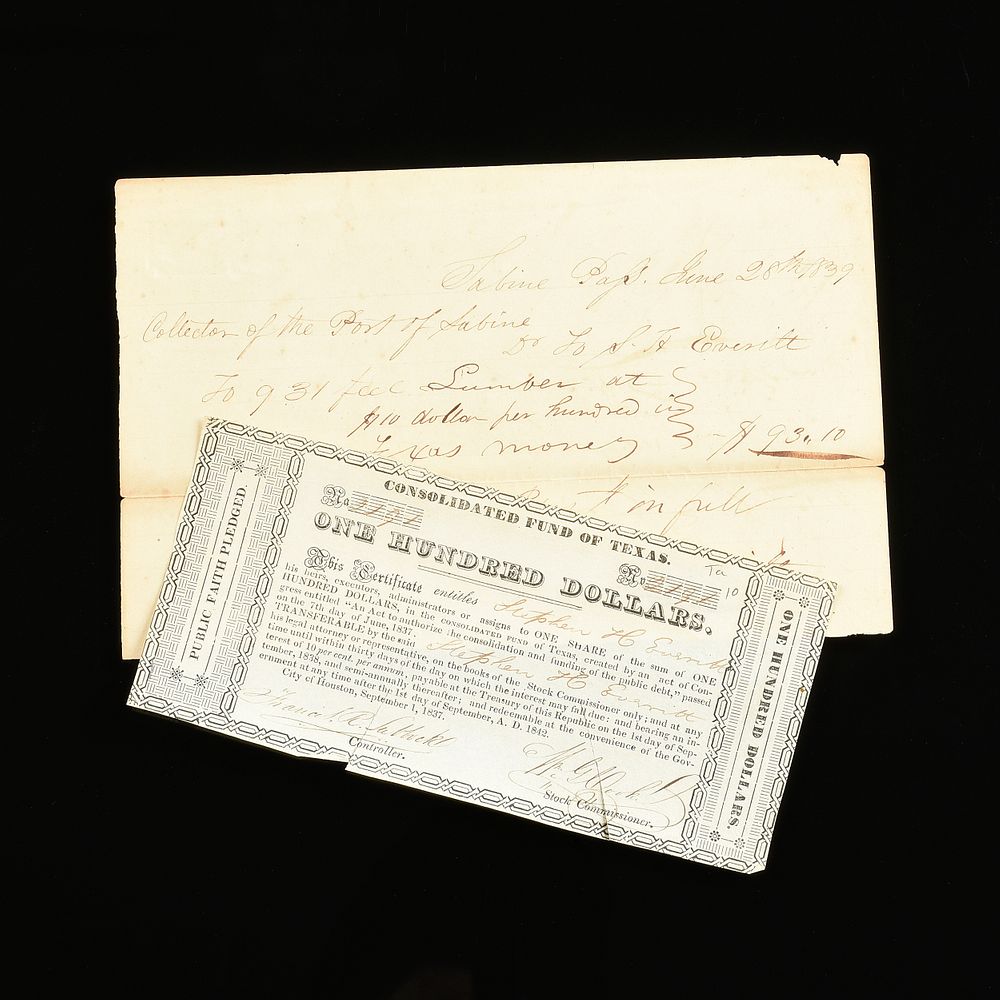 Sabine Pass. June 28th 1839
Collector of the Port of Sabine
Dr To S. H Everitt
To 931 feet Lumber at
$10 dollar per hundred in
Texas money - $ 93,,10
in full
CONSOLIDATED FUND OF TEXAS.
No
No
ONE HUNDRED DOLLARS.
This Certificate entitles Stephen H Everitt
his heirs, executors, administrators or assigns to ONE SHARE of the sum of ONE
HUNDRED DOLLARS, in the CONSOLIDATED FUND of Texas, created by an act of Con-
gress entitled "An Act to authorize the consolidation and funding of the public debt," passed
on the 7th day of June, 1837.
TRANSFERABLE by the said Stephen H. Everitt
his legal attorney or representative, on the books of the Stock Commissioner only; and at any
time until within thirty days of the day on which the interest may fall due: and bearing an in-
terest of 10 per cent. per annum, payable at the Treasury of this Republic on the 1st day of Sep-
tember, 1838, and semi-annually thereafter; and redeemable at the convenience of the Gov-
ernment at any time after the 1st day of September, A. D. 1842.
City of Houston, September 1, 1837.
Controller.
Stock Commissioner.
PUBLIC FAITH PLEDGED.
ONE HUNDRED DOLLARS.